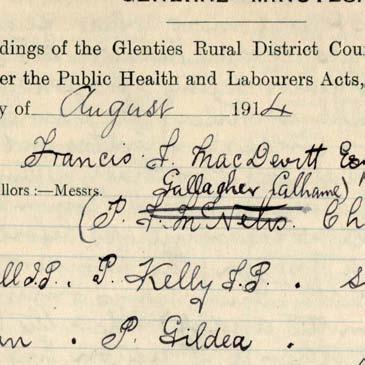 GENERAL MINUTES
dings of the Glenties Rural District Cou
er the Public Health and Labourers Acts,
y of August 1914
Francis J. MacDevitt Es
llors :—Messrs. Gallagher (Calhame)
(P. F. McNelis. Ch
ll J.P. . P. Kelly J.P. . S
n . P. Gildea .